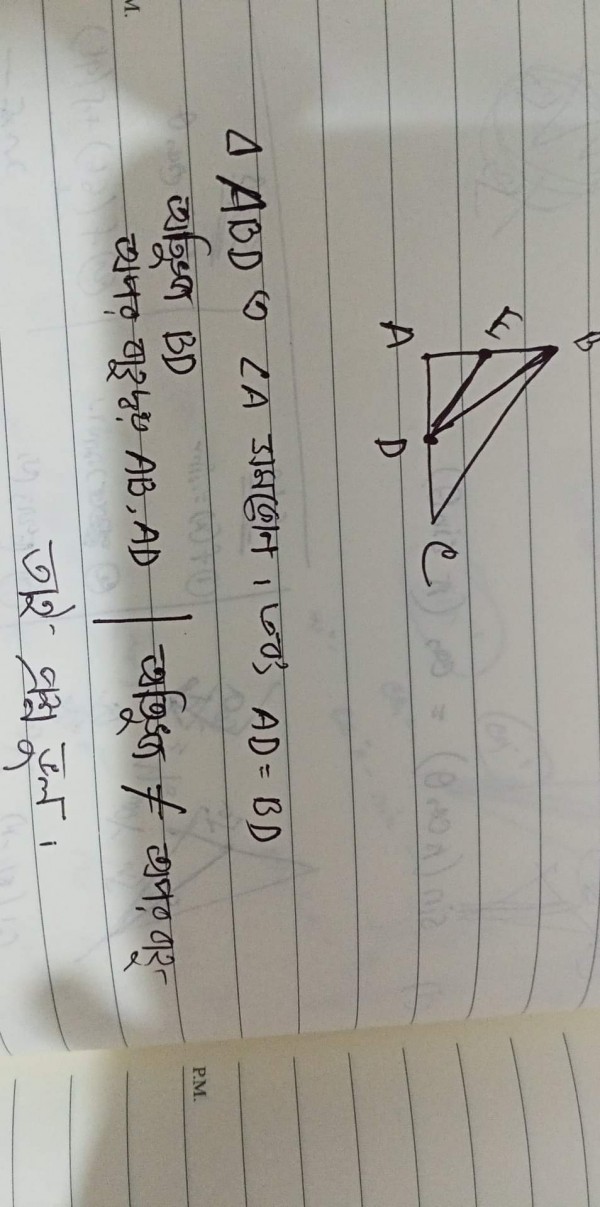 B
E
A
D
C
Δ ABD এ ∠A সমকোণ। এবং AD = BD
অতিভুজ BD
অপর বাহুদ্বয় AB, AD | অতিভুজ ≠ অপর বাহু
তাই প্রশ্ন ভুল।
P.M.